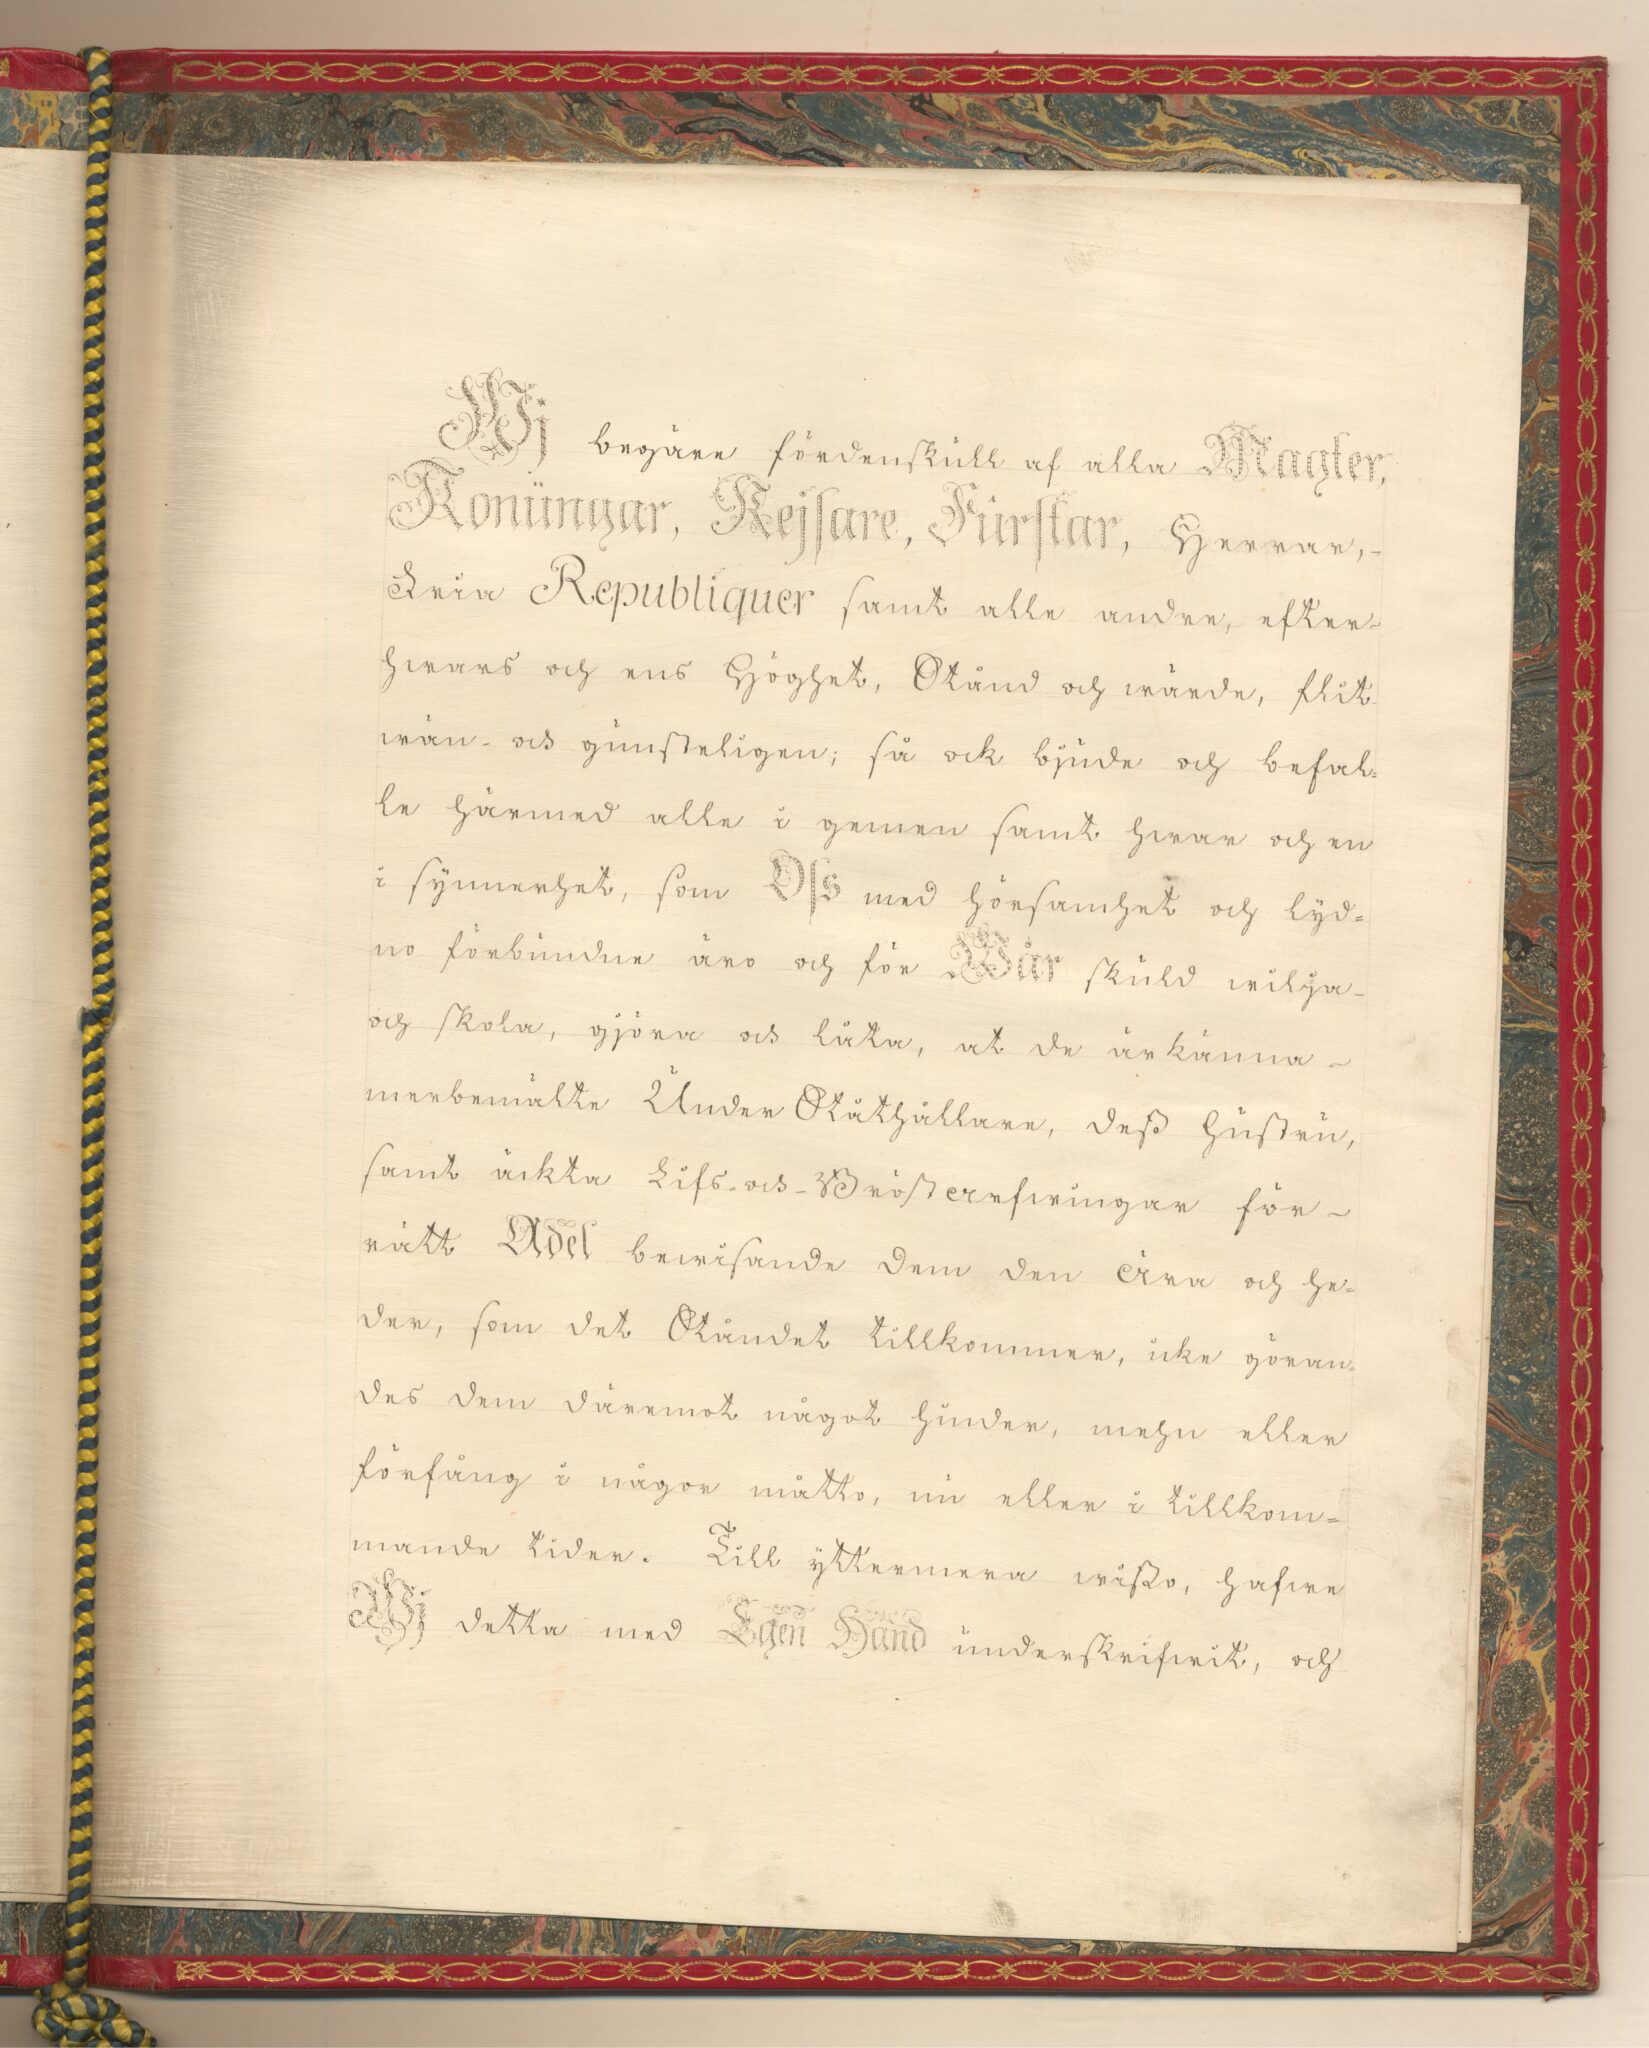 Wj begäre fördenskull af alla Magter,
Konungar, Kejsare, Furstar, Herrar,-
Fria Republiquer samt alle andre, efter-
hwars och ens Höghet, Stånd och wärde, flit-
wän- och gunsteligen; så ock bjude och befal-
le härmed alle i gemen samt hwar och en
i synnerhet, som Oss med hörsamhet och lyd-
no förbundne äro och för Wår skuld wilja-
och skola, gjöra och låta, at de ärkänna-
merbemälte Under Ståthållare, deß hustru,
samt äckta Lifs- och- Bröst arfwingar för-
rätt Adel bewisande dem den ära och he-
der, som det Ståndet tillkommer, icke göran-
des dem däremot något hinder, mehn eller
förfång i någor måtto, nu eller i tillkom-
mande tider. Till yttermera wißo, hafwe
Wj detta med Egen Hand underskrifwit, och